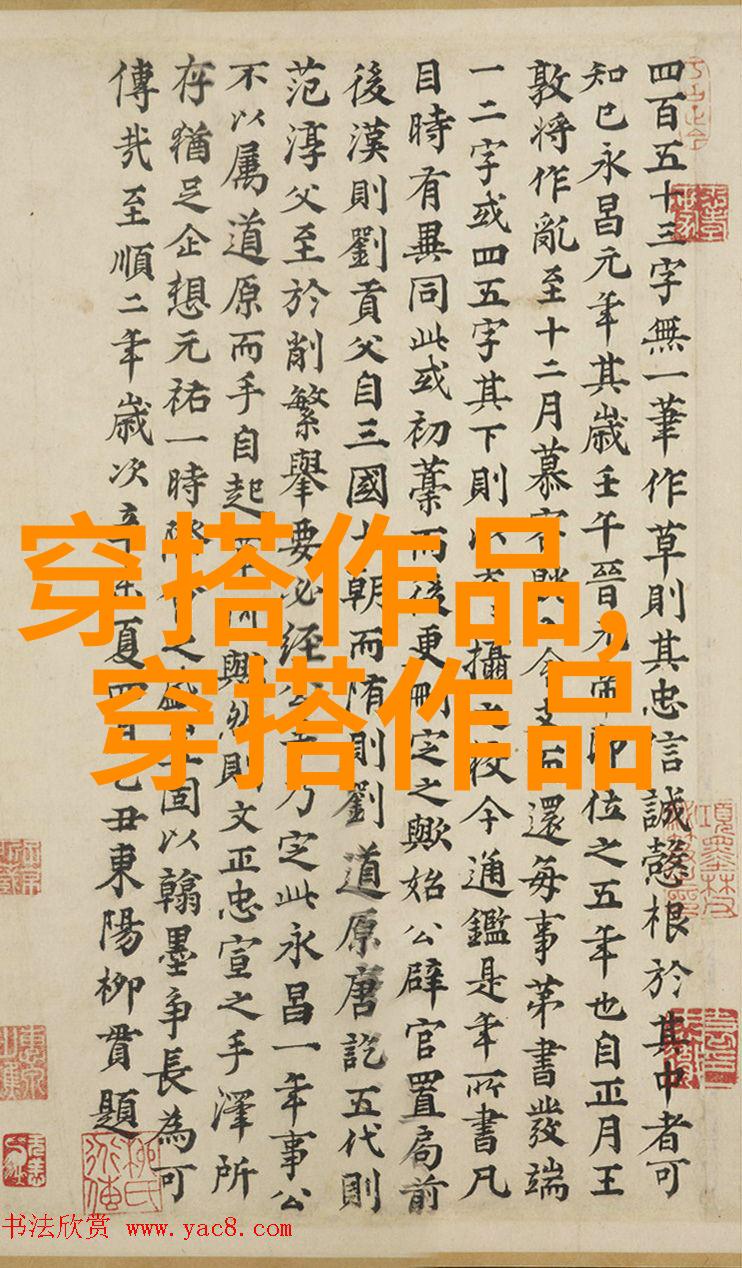 四百五十三字無一筆作草則其忠信誠慤根於其中者可
知已永昌元年其歲壬午晉元帝即位之五年也自正月王
敦將作亂至十二月慕容令支而還每事第書發端
一二字或四五字其下則以攝之校今通鑑是年所書凡
目時有異同此或初藁而後更刪定之歟始公辟官置局前
後漢則劉貢父自三國七朝而隋則劉道原唐訖五代則
范淳父至於削繁舉要必經公手乃定此永昌一年事公
不以屬道原而手自起草何歟然則文正忠宣之手澤所
存猶足企想元祐一時際會之盛固以翰墨爭長為可
傳哉至順二年歲次辛未夏四月己丑東陽柳貫題
穿搭作品,
穿搭作品
书法欣赏 www.yac8.com